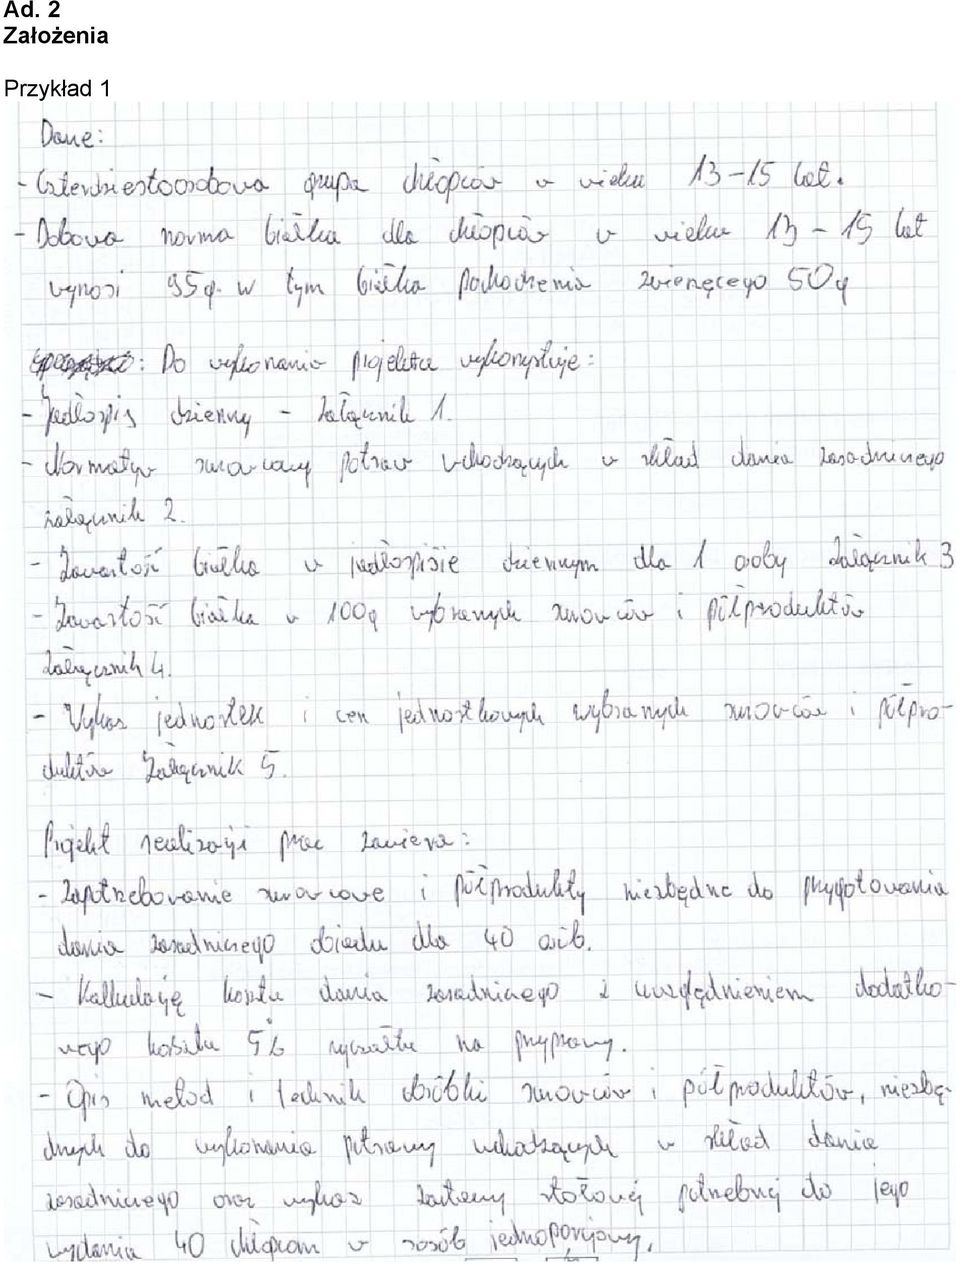 Ad. 2
Założenia
Przykład 1
Dane:
- Czterdziestoosobowa grupa chłopców w wieku 13-15 lat.
- Dobowa norma białka dla chłopców w wieku 13 - 15 lat
wynosi 95g. w tym białka pochodzenia zwierzęcego 50g
: Do wykonania projektu wykorzystuje:
- Jadłospis dzienny - Załącznik 1.
- Normatyw surowcowy potraw wchodzących w skład dania zasadniczego
załącznik 2.
- Zawartość białka w jadłospisie dziennym dla 1 osoby Załącznik 3
- Zawartość białka w 100g wybranych surowców i półproduktów
Załącznik 4.
- Wykaz jednostek i cen jednostkowych wybranych surowców i półpro-
duktów Załącznik 5.
Projekt realizacji prac zawiera:
- Zapotrzebowanie surowcowe i półprodukty niezbędne do przygotowania
dania zasadniczego obiadu dla 40 osób.
- Kalkulację kosztu dania zasadniczego z uwzględnieniem dodatko-
wego kosztu 5% ryczałtu na przyprawy.
- Opis metod i technik obróbki surowców i półproduktów, niezbę-
dnych do wykonania potrawy wchodzących w skład dania
zasadniczego oraz wykaz zastawy stołowej potrzebnej do jego
wydania 40 chłopcom w sposób jednoporcjowy.